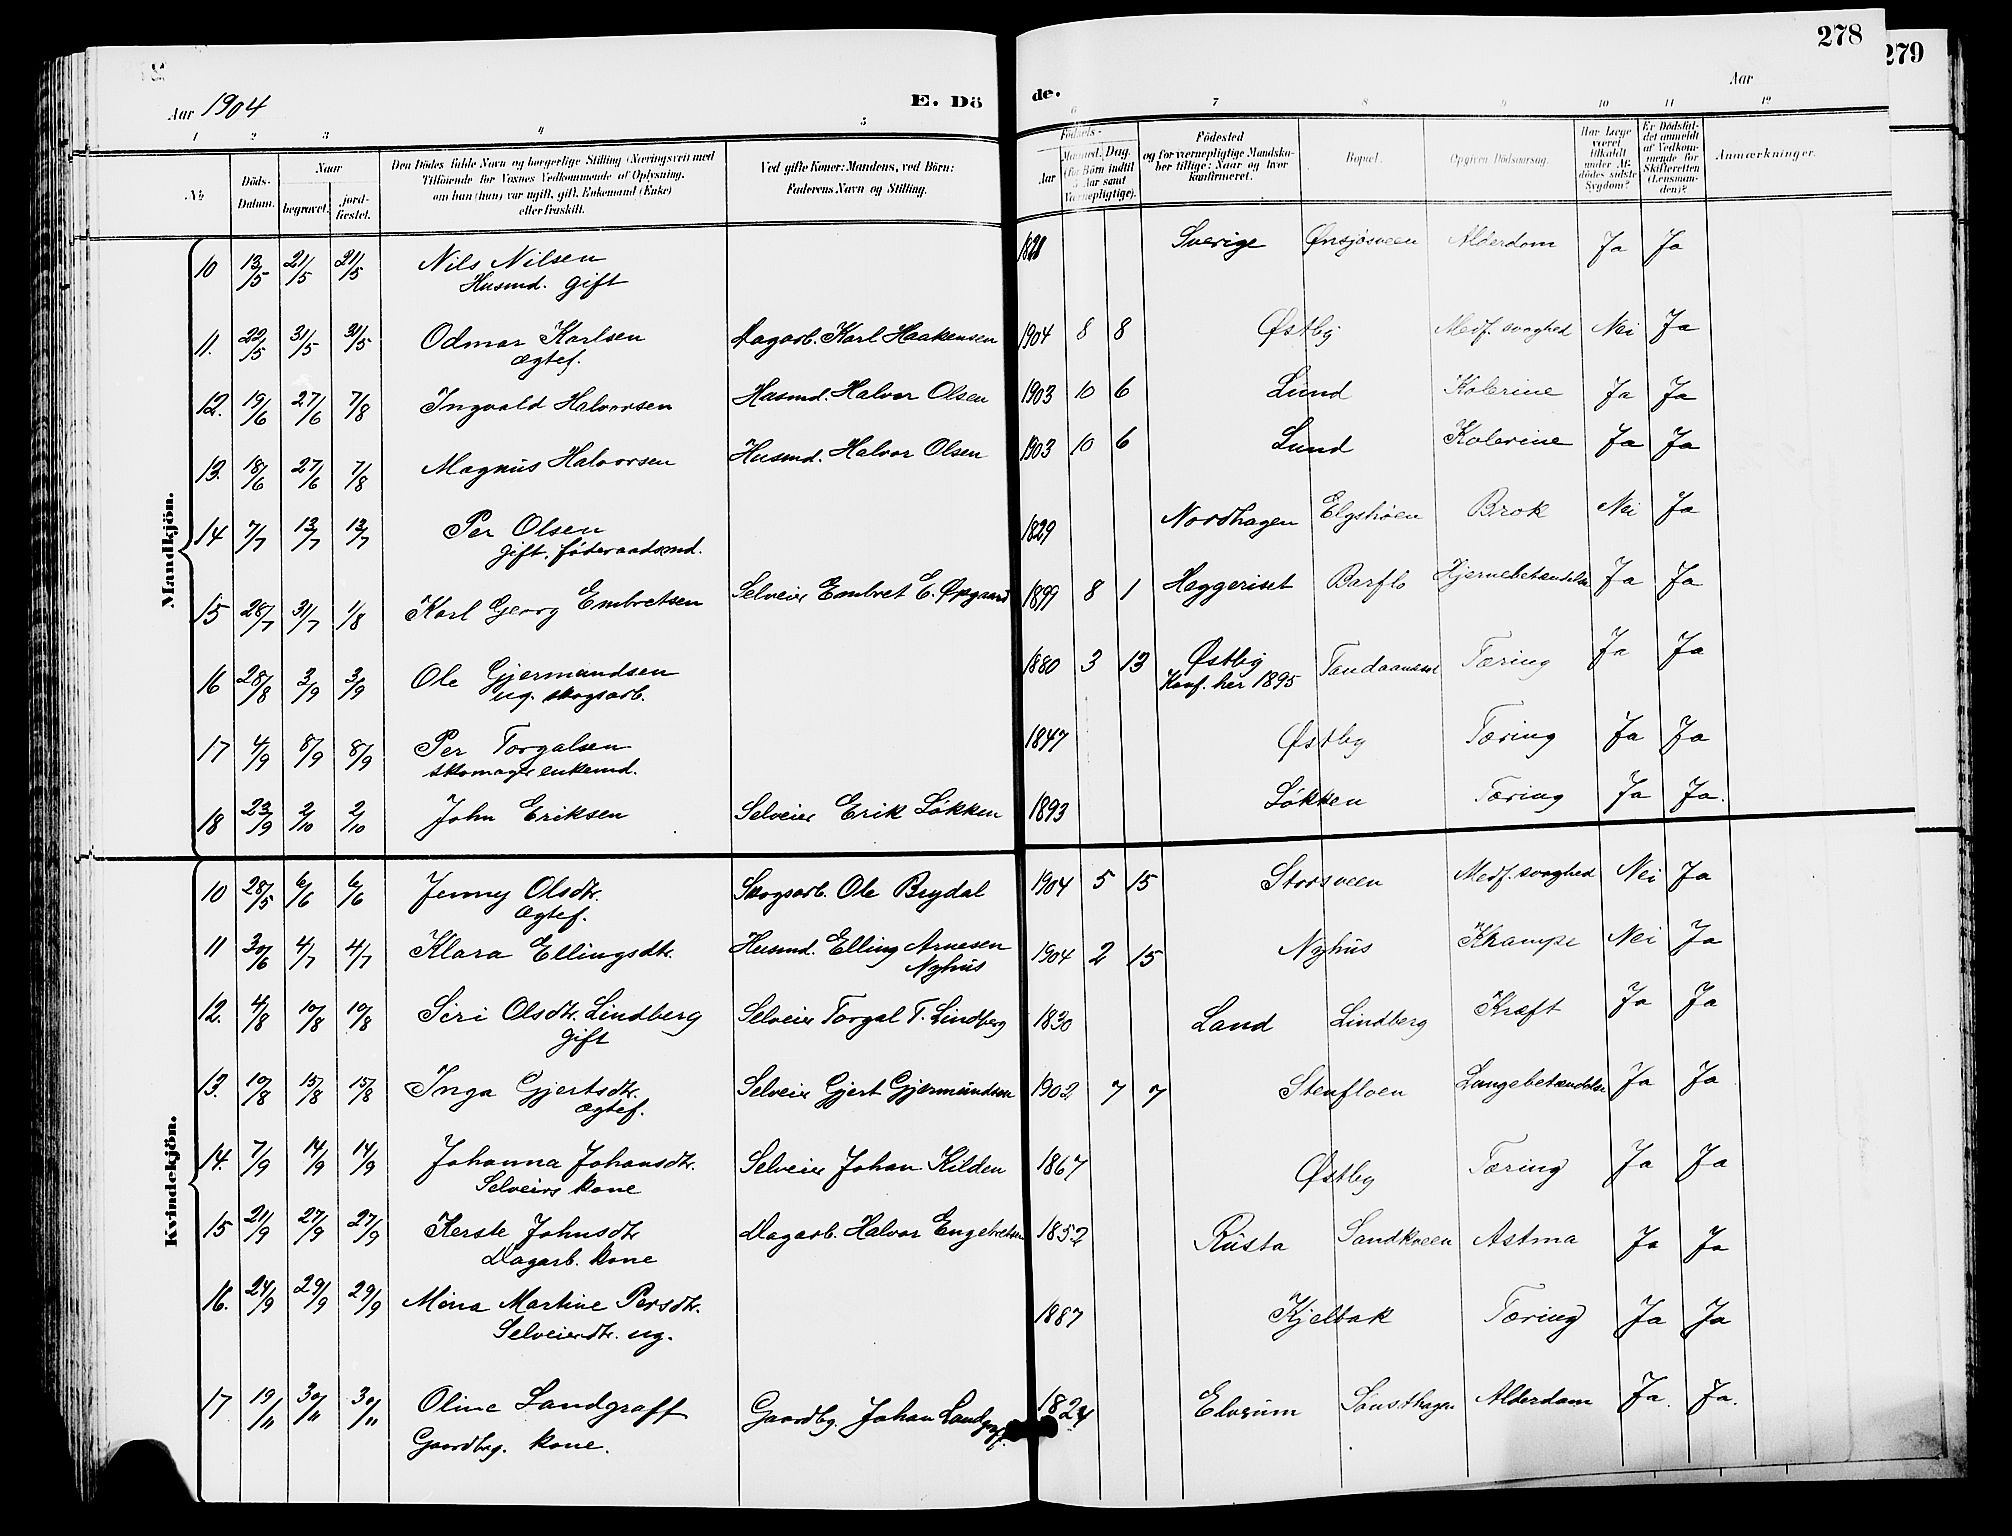 278
279
Aar 1904
E. Dö de.
Aar
1 2 3 4 5 6 7 8 9 10 11 12
No
Döds-Datum.
Naar
begravet.
jord-fæstet.
Den Dödes fulde Navn og borgerlige Stilling (Næringsvei) med
Tilföiende for Voxnes Vedkommende af Oplysning,
om han (hun) var ugift, gift, Enkemand (Enke)
eller fraskilt.
Ved gifte Koner: Mandens, ved Börn:
Faderens Navn og Stilling.
Födsels-
Aar
Maaned. Dag.
(for Börn indtil
Aar samt
Værnepligtige).
Födested
og for værnepligtige Mandska-
ber tillige: Naar og hvor
konfirmeret.
Bopæl.
Opgiven Dödsaarsag.
Har Læge
været
tilkaldt
under Af-
dödes sidste
Sygdom?
Er Dödsfal-
det anmeldt
af Vedkom-
mende for
Skifteretten
(Lensman-
den)?
Anmærkninger.
Mandkjön.
10 13/5 21/5 21/5 Nils Nilsen 1828 Sverige Ønsjøsveen Alderdom Ja Ja
Husmd. gift
11. 22/5 31/5 31/5 Odmar Karlsen Dagarb. Karl Haakensen 1904 8 8 Østby Medf. svaghed Nei Ja
ægtef.
12. 19/6 27/6 7/8 Ingvald Halvorsen Husmd. Halvor Olsen 1903 10 6 Lund Kolerine Ja Ja
13. 18/6 27/6 7/8 Magnus Halvorsen Husmd. Halvor Olsen 1903 10 6 Lund Kolerine Ja Ja
14 7/7 13/7 13/7 Per Olsen 1829 Nordhagen Elgshøen Brok Nei Ja
gift. føderaadsmd.
15 28/7 31/7 1/8 Karl Georg Embretsen Selveier Embret E. Øpgaard 1899 8 1 Heggeriset Barflo Hjernebetændelse Ja Ja
16 28/8 3/9 3/9 Ole Gjermundsen 1880 3 13 Østby Tandaanæset Tæring Ja Ja
ug. skogsarb. Konf. her 1895
17 4/9 8/9 8/9 Per Torgalsen 1847 Østby Tæring Ja Ja
skomager enkemd.
18 23/9 2/10 2/10 John Eriksen Selveier Erik Løkken 1893 Løkken Tæring Ja Ja.
Kvindekjön.
10 28/5 6/6 6/6 Jenny Olsdtr. Skogsarb. Ole Brydal 1904 5 15 Storsveen Medf. svaghed Nei Ja
ægtef.
11 30/6 4/7 4/7 Klara Ellingsdtr. Husmd. Elling Arnesen 1904 2 15 Nyhus Krampe Nei Ja
Nyhus
12. 4/8 10/8 10/8 Siri Olsdtr. Lindberg Selveier Torgal T. Lindberg 1830 Land Lindberg Kræft Ja Ja
gift
13. 10/8 15/8 15/8 Inga Gjertsdtr. Selveier Gjert Gjermundsen 1902 7 7 Stenfloen Lungebetændelse Ja Ja
ægtef.
14. 7/9 14/9 14/9 Johanna Johansdtr. Selveier Johan Kilden 1867 Østby Tæring Ja Ja
Selveiers kone
15 21/9 27/9 27/9 Kerste Johnsdtr Dagarb. Halvor Engebretsen 1852 Rusta Sandkveen Astma Ja Ja
Dagarb. kone
16. 24/9 29/9 29/9 Mina Martine Persdtr. 1887 Kjelbak Tæring Ja Ja
Selveierdtr. ug.
17 19/11 30/11 30/11 Oline Landgraff Gaardbg. Johan Landgraff 1824 Elverum Alderdom Ja. Ja.
Gaardbrg. kone.